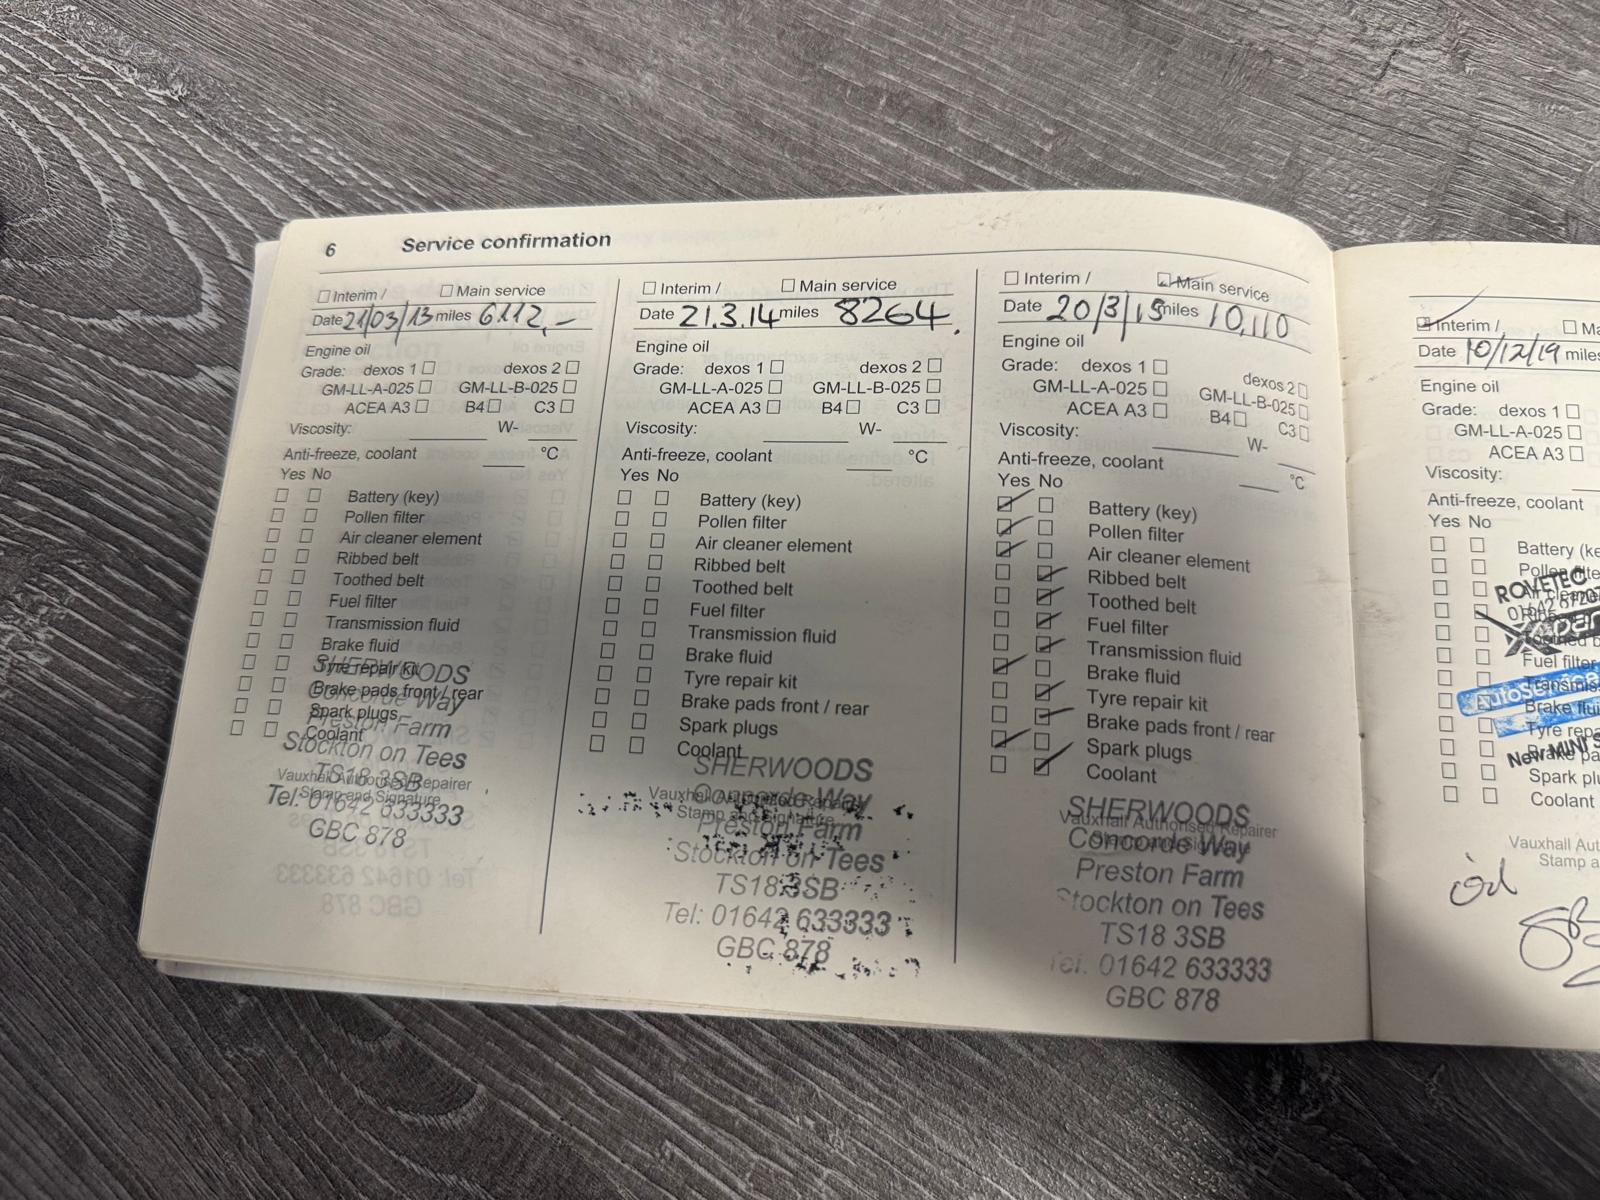 6 Service confirmation
Interim / Main service
Date 21/03/13 miles 6112,-
Engine oil
Grade: dexos 1 dexos 2
GM-LL-A-025 GM-LL-B-025
ACEA A3 B4 C3
Viscosity: W-
Anti-freeze, coolant °C
Yes No
Battery (key)
Pollen filter
Air cleaner element
Ribbed belt
Toothed belt
Fuel filter
Transmission fluid
Brake fluid
Tyre repair kit
Brake pads front / rear
Spark plugs
Coolant
Vauxhall Authorised Repairer
Stamp and Signature
SHERWOODS
Concorde Way
Preston Farm
Stockton on Tees
TS18 3SB
Tel: 01642 633333
GBC 878
Interim / Main service
Date 21.3.14 miles 8264.
Engine oil
Grade: dexos 1 dexos 2
GM-LL-A-025 GM-LL-B-025
ACEA A3 B4 C3
Viscosity: W-
Anti-freeze, coolant °C
Yes No
Battery (key)
Pollen filter
Air cleaner element
Ribbed belt
Toothed belt
Fuel filter
Transmission fluid
Brake fluid
Tyre repair kit
Brake pads front / rear
Spark plugs
Coolant
Vauxhall Authorised Repairer
Stamp and Signature
SHERWOODS
Concorde Way
Preston Farm
Stockton on Tees
TS18 3SB
Tel: 01642 633333
GBC 878
Interim / Main service
Date 20/3/15 miles 10,110
Engine oil
Grade: dexos 1 dexos 2
GM-LL-A-025 GM-LL-B-025
ACEA A3 B4 C3
Viscosity: W-
Anti-freeze, coolant °C
Yes No
Battery (key)
Pollen filter
Air cleaner element
Ribbed belt
Toothed belt
Fuel filter
Transmission fluid
Brake fluid
Tyre repair kit
Brake pads front / rear
Spark plugs
Coolant
Vauxhall Authorised Repairer
Stamp and Signature
SHERWOODS
Concorde Way
Preston Farm
Stockton on Tees
TS18 3SB
Tel: 01642 633333
GBC 878
Interim / Ma
Date 10/12/19 miles
Engine oil
Grade: dexos 1
GM-LL-A-025
ACEA A3
Viscosity:
Anti-freeze, coolant
Yes No
Battery (ke
Pollen filte
Fuel filter
Transmis
Brake flui
Tyre repa
Brake pa
Spark plu
Coolant
ROVETEC
AutoService
New MINI S
Vauxhall Aut
Stamp a
oil